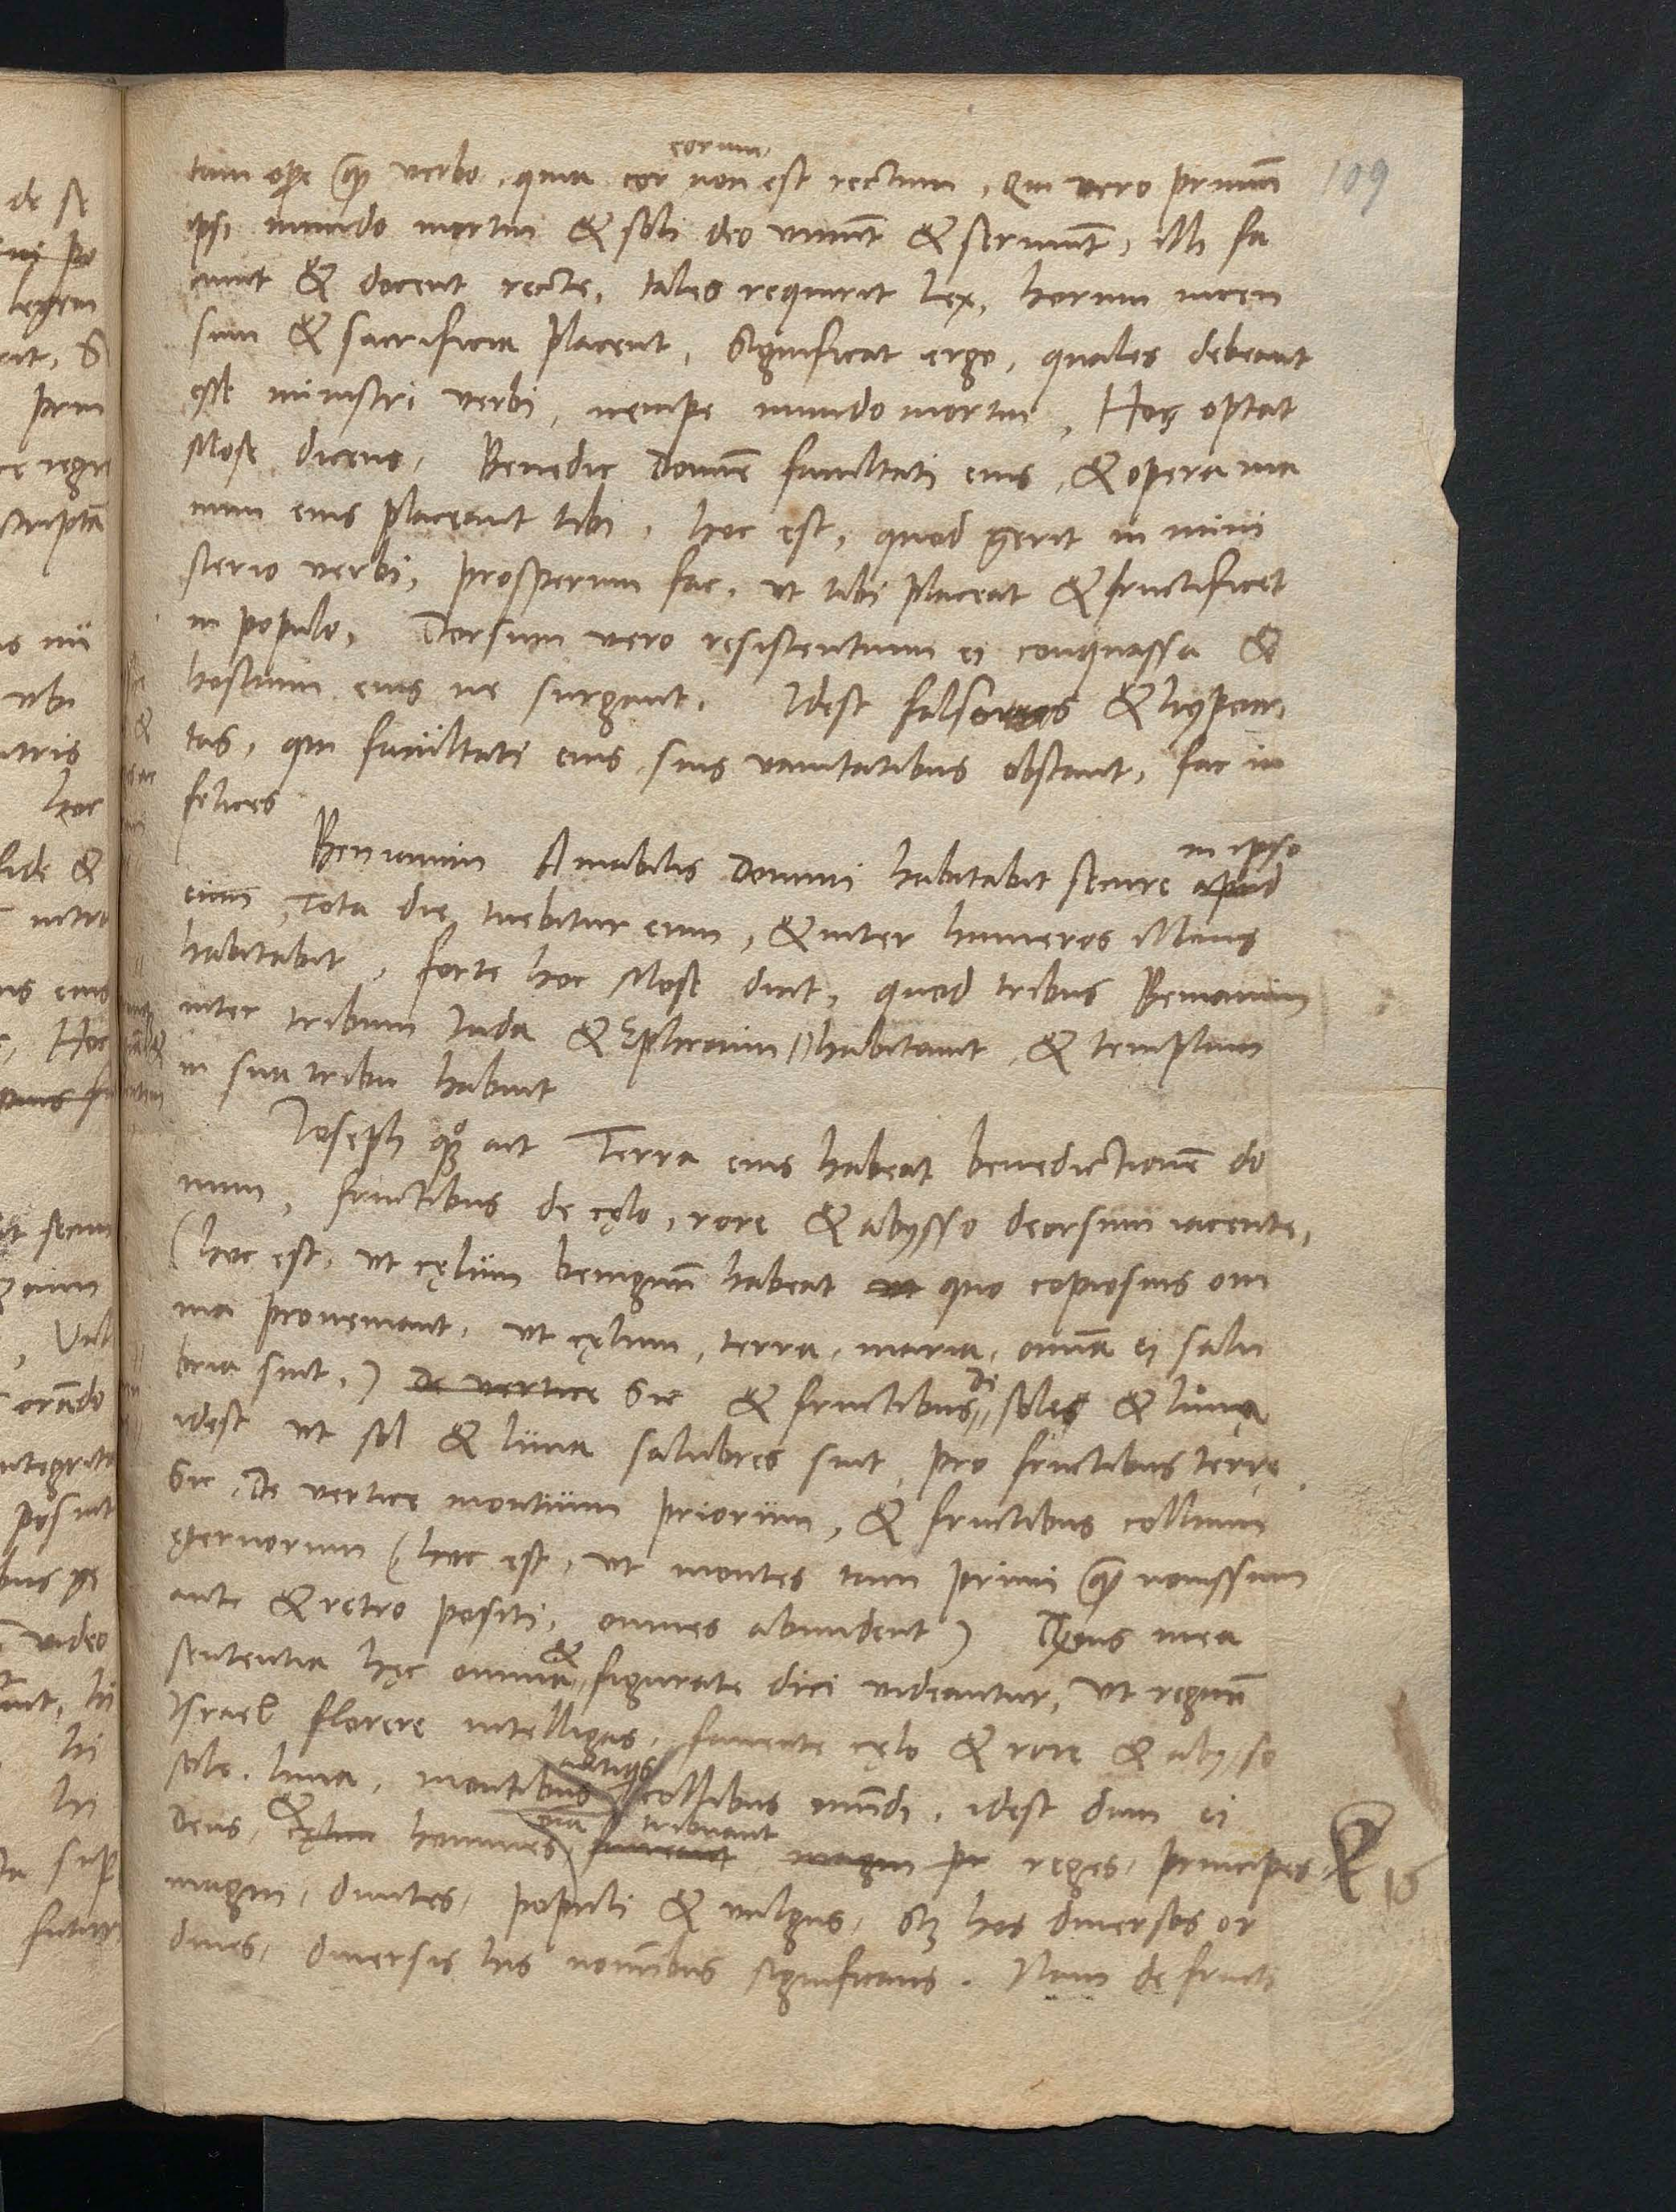 109
tam ope quam verbo, quia cor eorum non est rectum, Qui vero primum
ipsi mundo mortui & soli deo viuunt & seruiunt, illi fa
ciunt & docent recte, tales requirit lex, horum incen
sum & sacrificia placent, Significat ergo, quales debeant
esse ministri verbi, nempe mundo mortui, Hos optat
Mose dicens, Benedic Domine facultati eius, & opera ma
nuum eius placeant tibi, hoc est, quod gerit in mini
sterio verbi, prosperum fac, ut tibi placeat & fructificet
in populo, Dorsum vero resistentium ei conquassa &
hostium eius ne surgant, Idest falsos & hypocri
tas, qui facultati eius suis vanitatibus obstant, fac in
felices
Beniamin Amabilis Domini habitabit secure in ipso apud
eum, Tota die tuebitur eum, & inter humeros illius
habitabit, forte hoc Mose dicit, quod tribus Beniamin
inter tribum Iuda & Ephraim habitauit, & templum
in sua tribu habuit
Ioseph quoque ait Terra eius habeat benedictionem do
mini, fructibus de cęlo, rore & abysso deorsum iacente,
(hoc est, ut cęlum benignum habeat ut quo copiosius om
nia proueniant, ut cęlum, terra, maria, omnia ei salu
bria sint,) De vertice Sic & fructibus De solis & lunę
idest ut sol & luna salubres sint, pro fructibus terrę.
Sic, De vertice montium priorum, & fructibus collium
ęternorum (hoc est, ut montes tam primi quam nouissimi
ante & retro positi, omnes abundent) mea
sententia hęc omnia & figurate dici videantur, ut regnum
Israel florere intelligas, fauente cęlo & rore & abysso
sole, luna, montibus antiquis collibus mundi, idest dum ei
Deus, & cęlum homines omnia tribuant faueant magni pr reges, principes
magni, diuites, populi & vulgus, sed hos diuersos or
dines, diuersis his nominibus significans. Nam de fructi